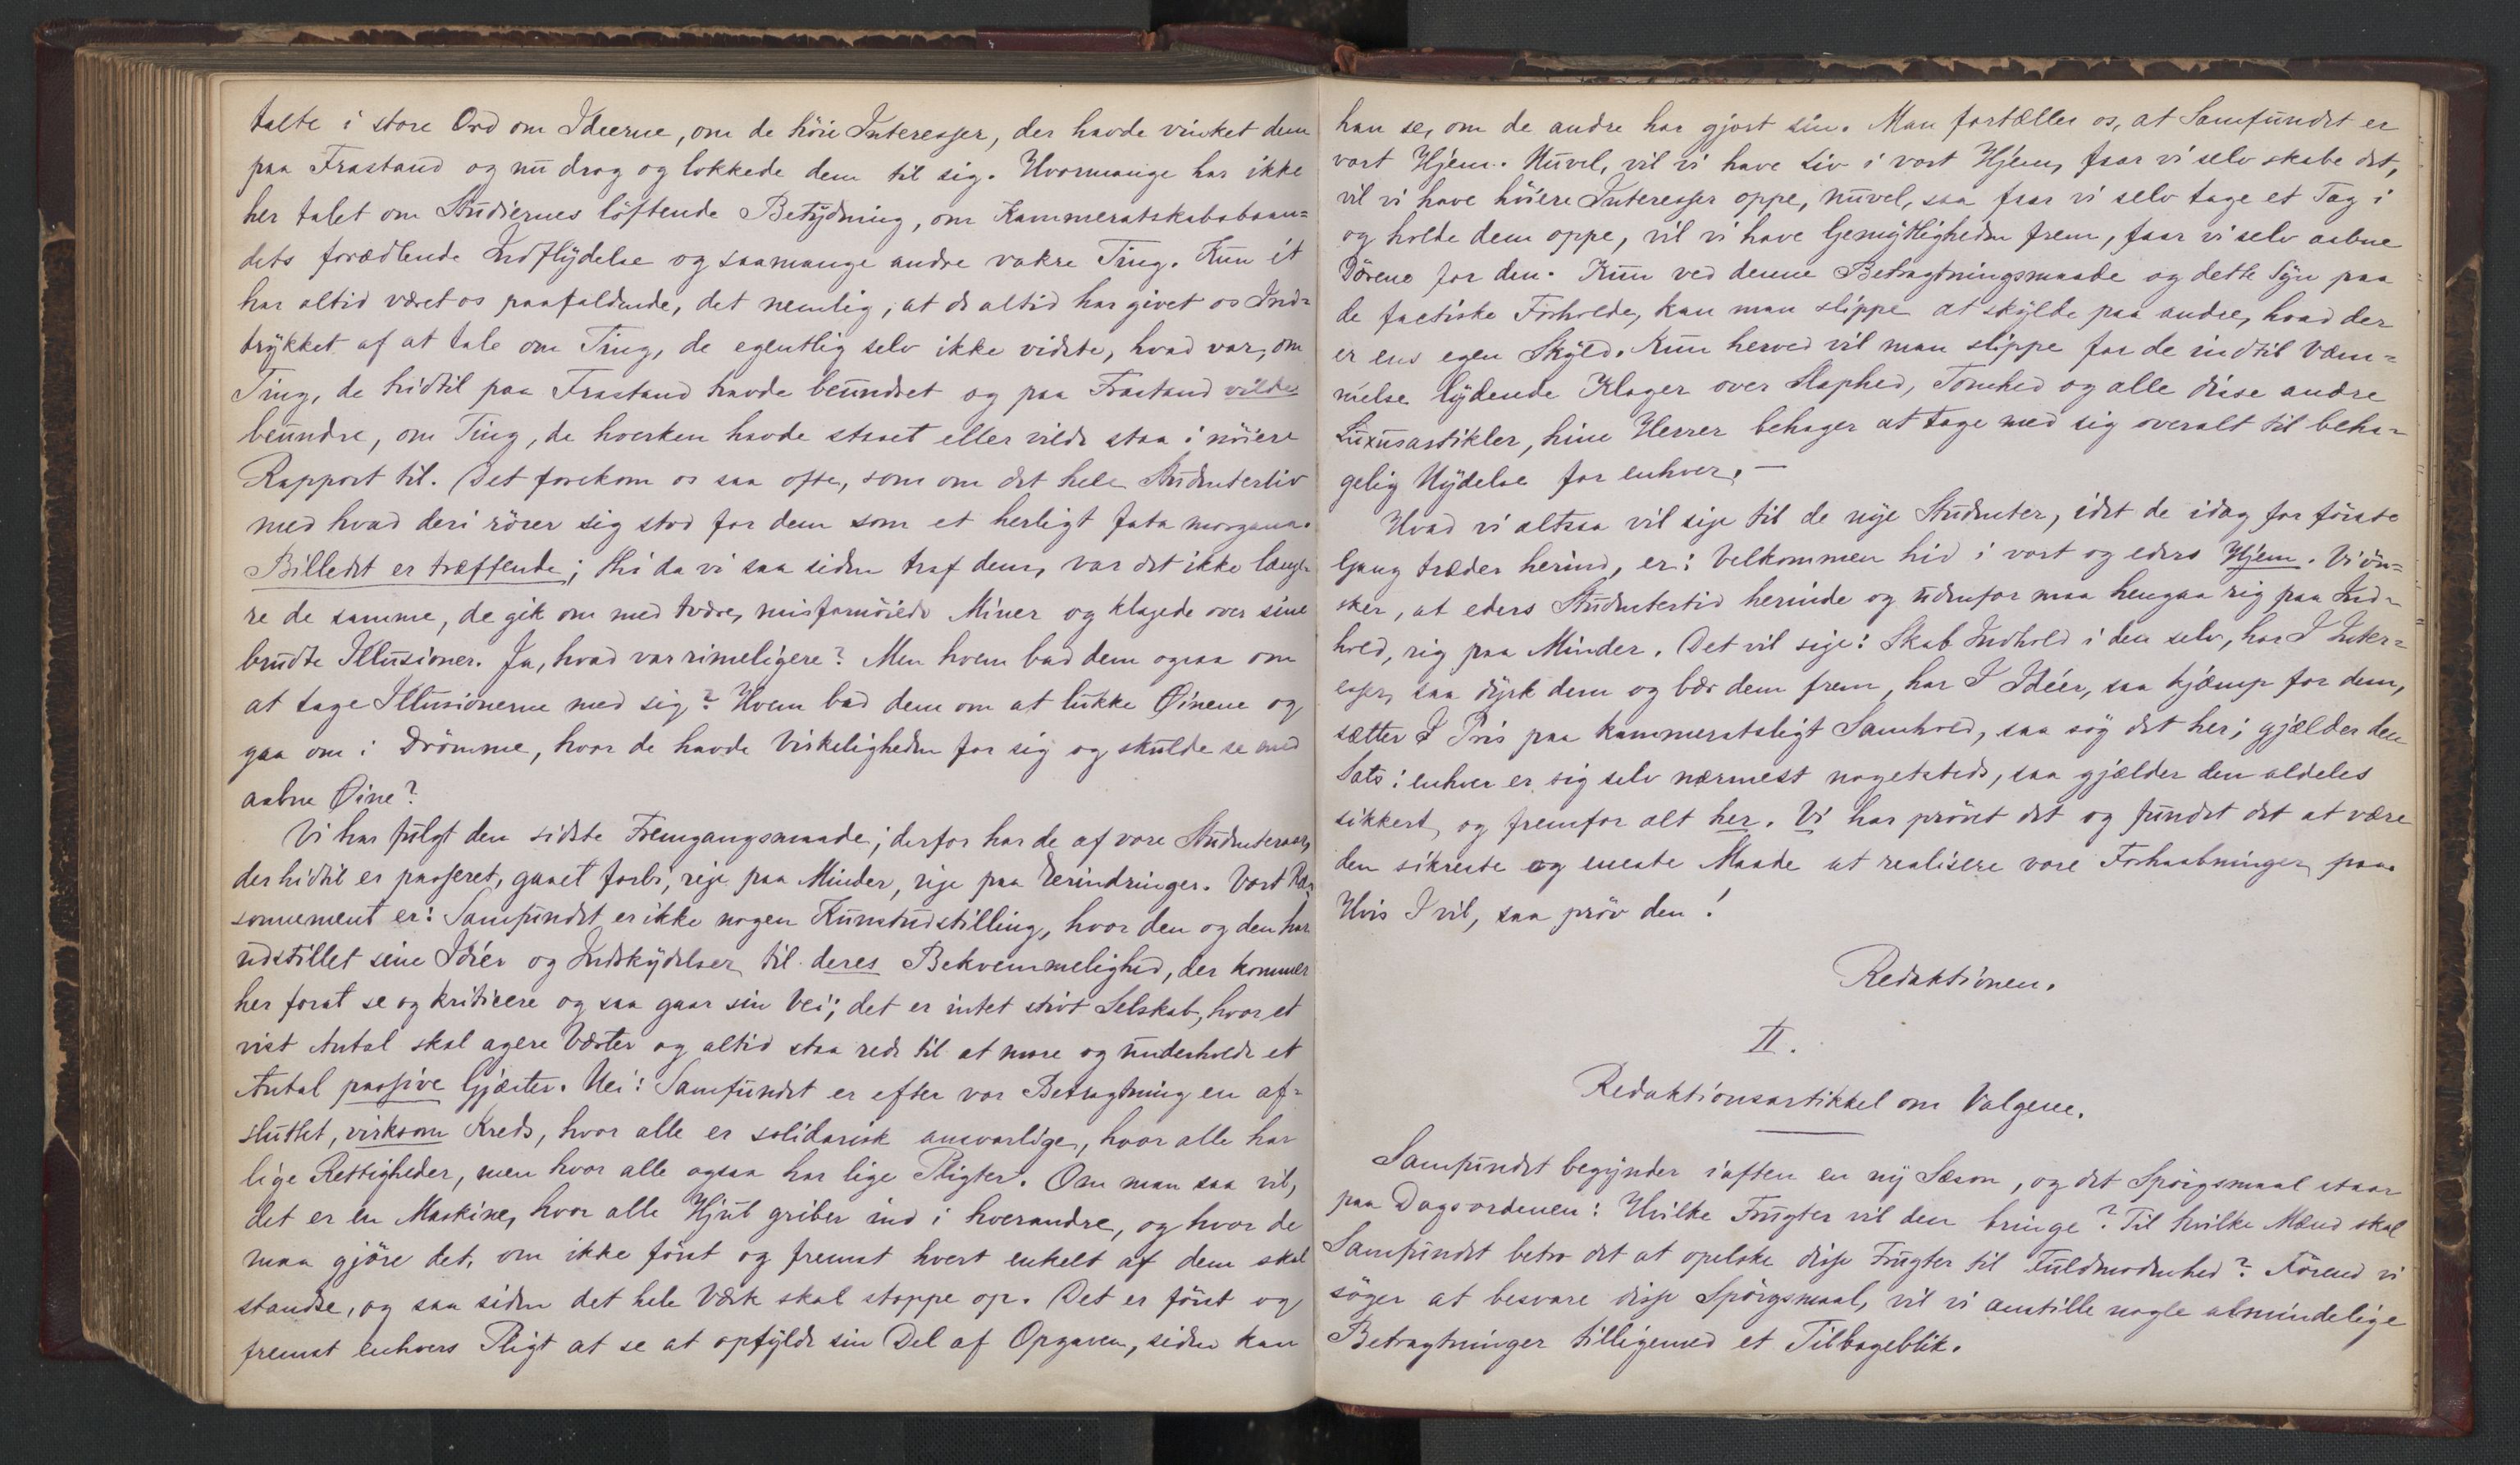 talte i store Ord om Ideerne, om de höie Interesser, der havde vinket dem
paa Frastand og nu drog og lokkede dem til sig. Hvormange har ikke
her talet om Studiernes löftende Betydning, om Kammeratskabsbaan=
dets forædlende Indflydelse og saamange andre vakre Ting. Kun ét
har altid været os paafaldende, det nemlig, at de altid har givet os Ind=
trykket af at tale om Ting, de egentlig selv ikke vidste, hvad var, om
Ting, de hidtil paa Frastand havde beundret og paa Frastand vilde
beundre, om Ting, de hverken havde staaet eller vilde staa i nöiere
Rapport til. Det forekom os saa ofte, som om det hele Studenterliv
med hvad deri rörer sig stod for dem som et herligt fata morgana.
Billedet er træffende; thi da vi saa siden traf dem, var det ikke læng=
re de samme, de gik om med tvære, misfornöiede Miner og klagede over sine
brudte Illusioner. Ja, hvad var rimeligere? Men hvem bad dem ogsaa om
at tage Illusionerne med sig? Hvem bad dem om at lukke Øinene og
gaa om i Drömme, hvor de havde Virkeligheden for sig og skulde se med
aabne Øine?
Vi har fulgt den sidste Fremgangsmaade; derfor har de af vore Studenteraar,
der hidtil er passeret, gaaet forbi, rige paa Minder, rige paa Erindringer. Vort Ræ=
sonnement er: Samfundet er ikke nogen Kunstudstilling, hvor den og den har
udstillet sine Idéer og Indskydelser til deres Bekvemmelighed, der kommer
her forat se og kritisere og saa gaar sin Vei; det er intet stivt Selskab, hvor et
vist Antal skal agere Værter og altid staa rede til at more og underholde et
Antal passive Gjæster. Nei: Samfundet er efter vor Betragtning en af=
sluttet, virksom Kreds, hvor alle er solidarisk ansvarlige, hvor alle har
lige Rettigheder, men hvor alle ogsaa har lige Pligter. Om man saa vil,
det er en Maskine, hvor alle Hjul griber ind i hverandre, og hvor de
maa gjöre det, om ikke först og fremst hvert enkelt af dem skal
standse, og saa siden det hele Værk skal stoppe op. Det er först og
fremst enhvers Pligt at se at opfylde sin Del af Opgaven, siden kan
han se, om de andre har gjort sin. Man fortæller os, at Samfundet er
vort Hjem. Nuvel, vil vi have Liv i vort Hjem, faar vi selv skabe det,
vil vi have höiere Interesser oppe, nuvel, saa faar vi selv tage et Tag i
og holde dem oppe, vil vi have Gemytligheden frem, faar vi selv aabne
Dörene for den. Kun ved denne Betragtningsmaade og dette Syn paa
de factiske Forholde, kan man slippe at skylde paa andre, hvad der
er ens egen Skyld. Kun herved vil man slippe for de indtil Væm=
melse lydende Klager over Slaphed, Tomhed og alle disse andre
Luxusartikler, hine Herrer behager at tage med sig overalt til beha=
gelig Nydelse for enhver. —
Hvad vi altsaa vil sige til de nye Studenter, idet de idag for förste
Gang træder herind, er: Velkommen hid i vort og eders Hjem. Vi ön=
sker, at eders Studentertid herinde og udenfor maa hengaa rig paa Ind=
hold, rig paa Minder. Det vil sige: Skab Indhold i den selv, har I Inter=
esser, saa dyrk dem og bær dem frem, har I Idéer, saa kjæmp for dem,
sætter I Pris paa kammeratsligt Samhold, saa søg det her; gjælder den
Sats: enhver er sig selv nærmest nogetsteds, saa gjælder den aldeles
sikkert og fremfor alt her. Vi har prövet det og fundet det at være
den sikreste og eneste Maade at realisere vore Forhaabninger paa.
Hvis I vil, saa pröv den!
Redaktionen.
II.
Redaktionsartikkel om Valgene.
Samfundet begynder iaften en ny Sæson, og det Spörgsmaal staar
paa Dagsordenen: Hvilke Frugter vil den bringe? Til hvilke Mænd skal
Samfundet betro det at opelske disse Frugter til Fuldmodenhed? Förend vi
söger at besvare disse Spörgsmaal, vil vi anstille nogle almindelige
Betragtninger tilligemed et Tilbageblik.